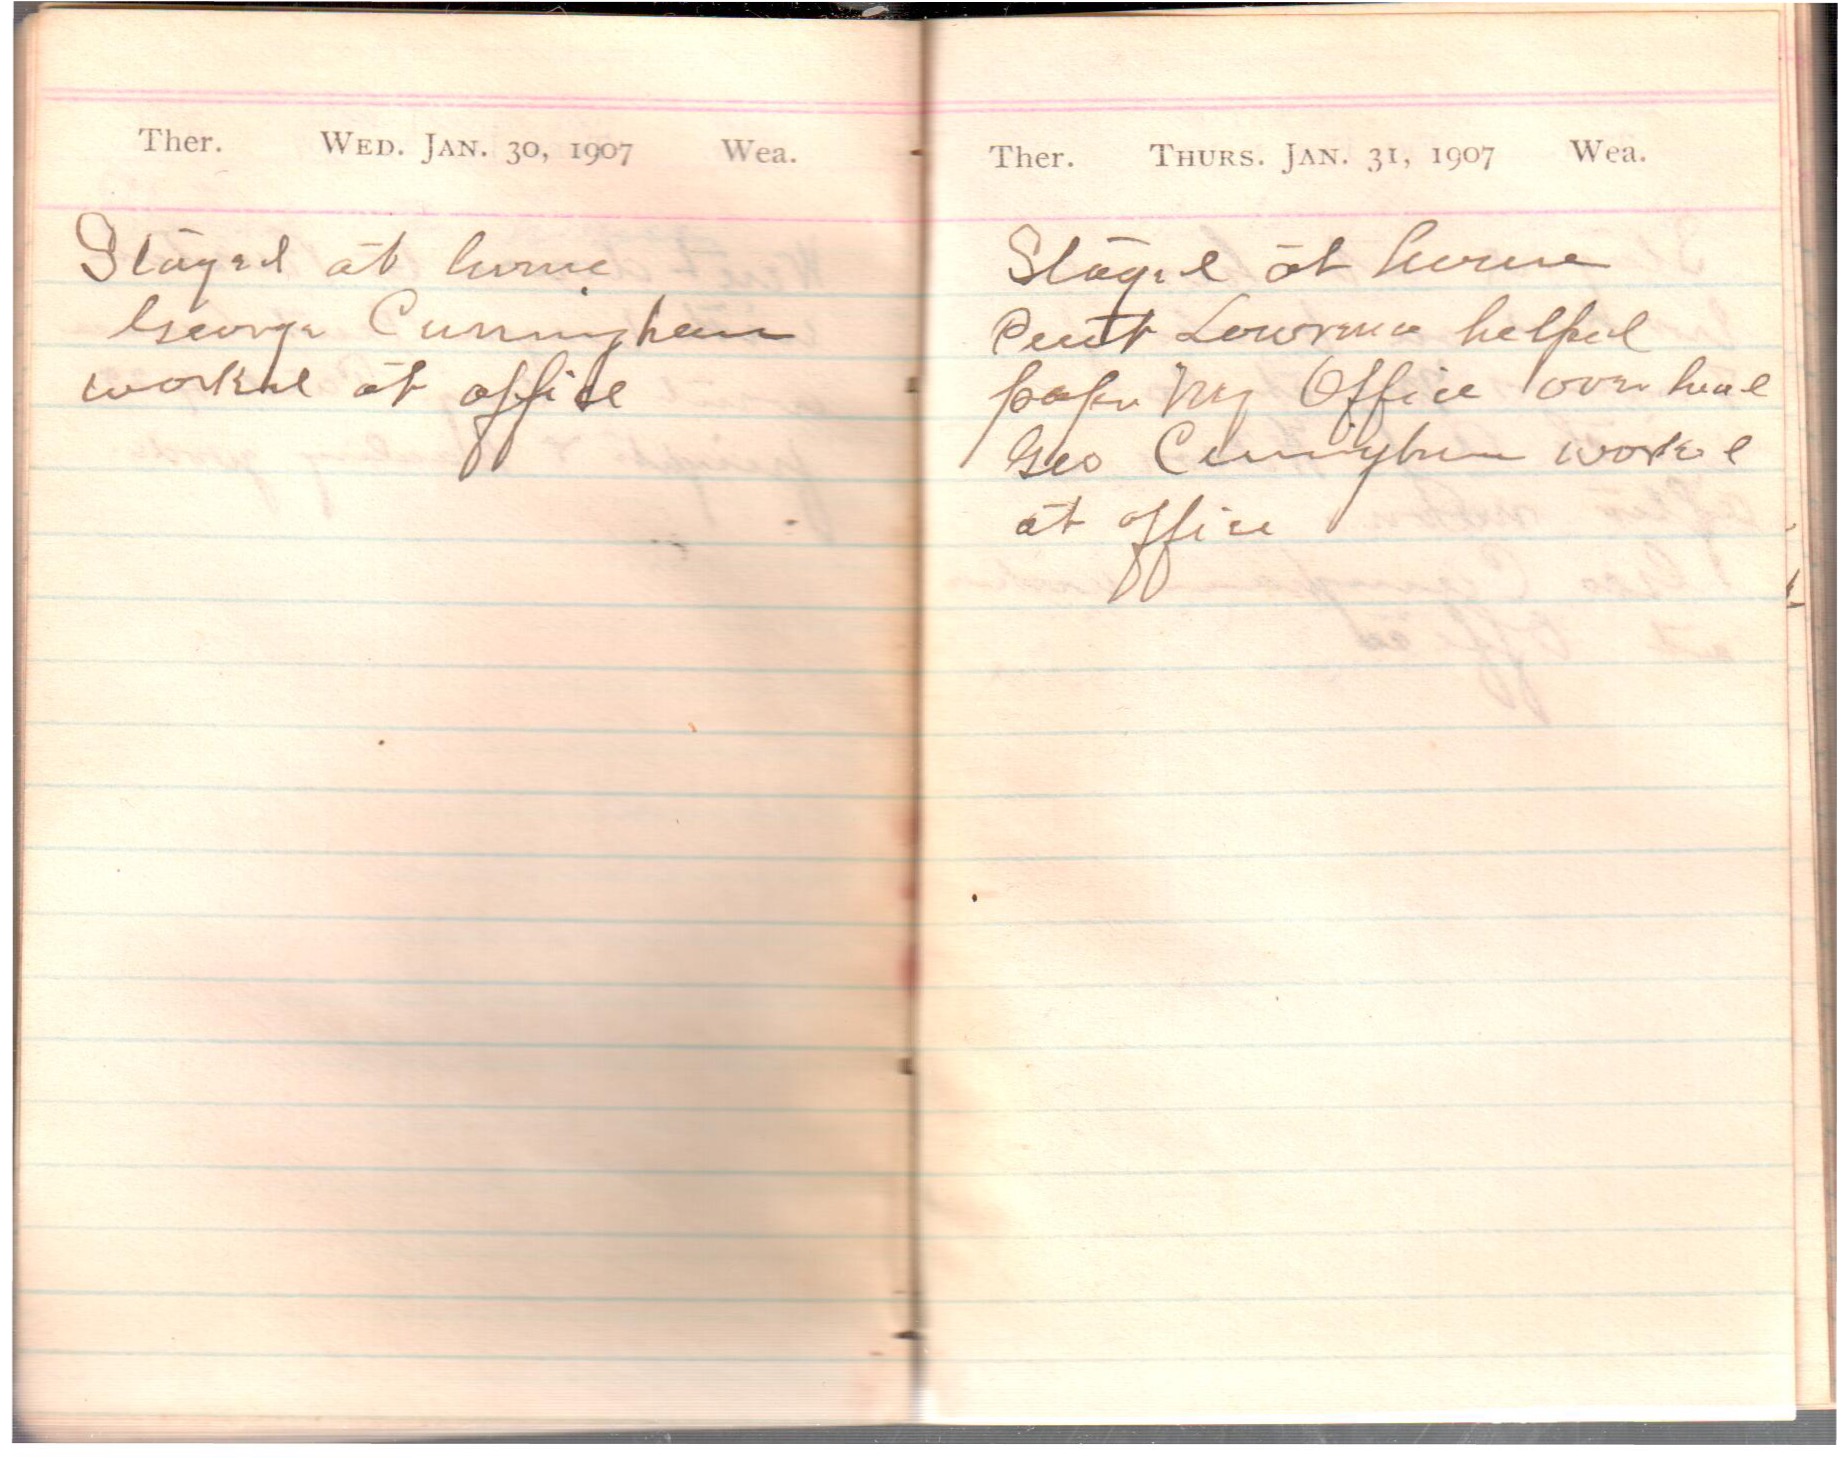 Ther. WED. JAN. 30, 1907 Wea.
Stayed at home
George Cunningham
worked at office
Ther. THURS. JAN. 31, 1907 Wea.
Stayed at home
Lowrence helped
paper My Office over head
Geo Cunningham worked
at office